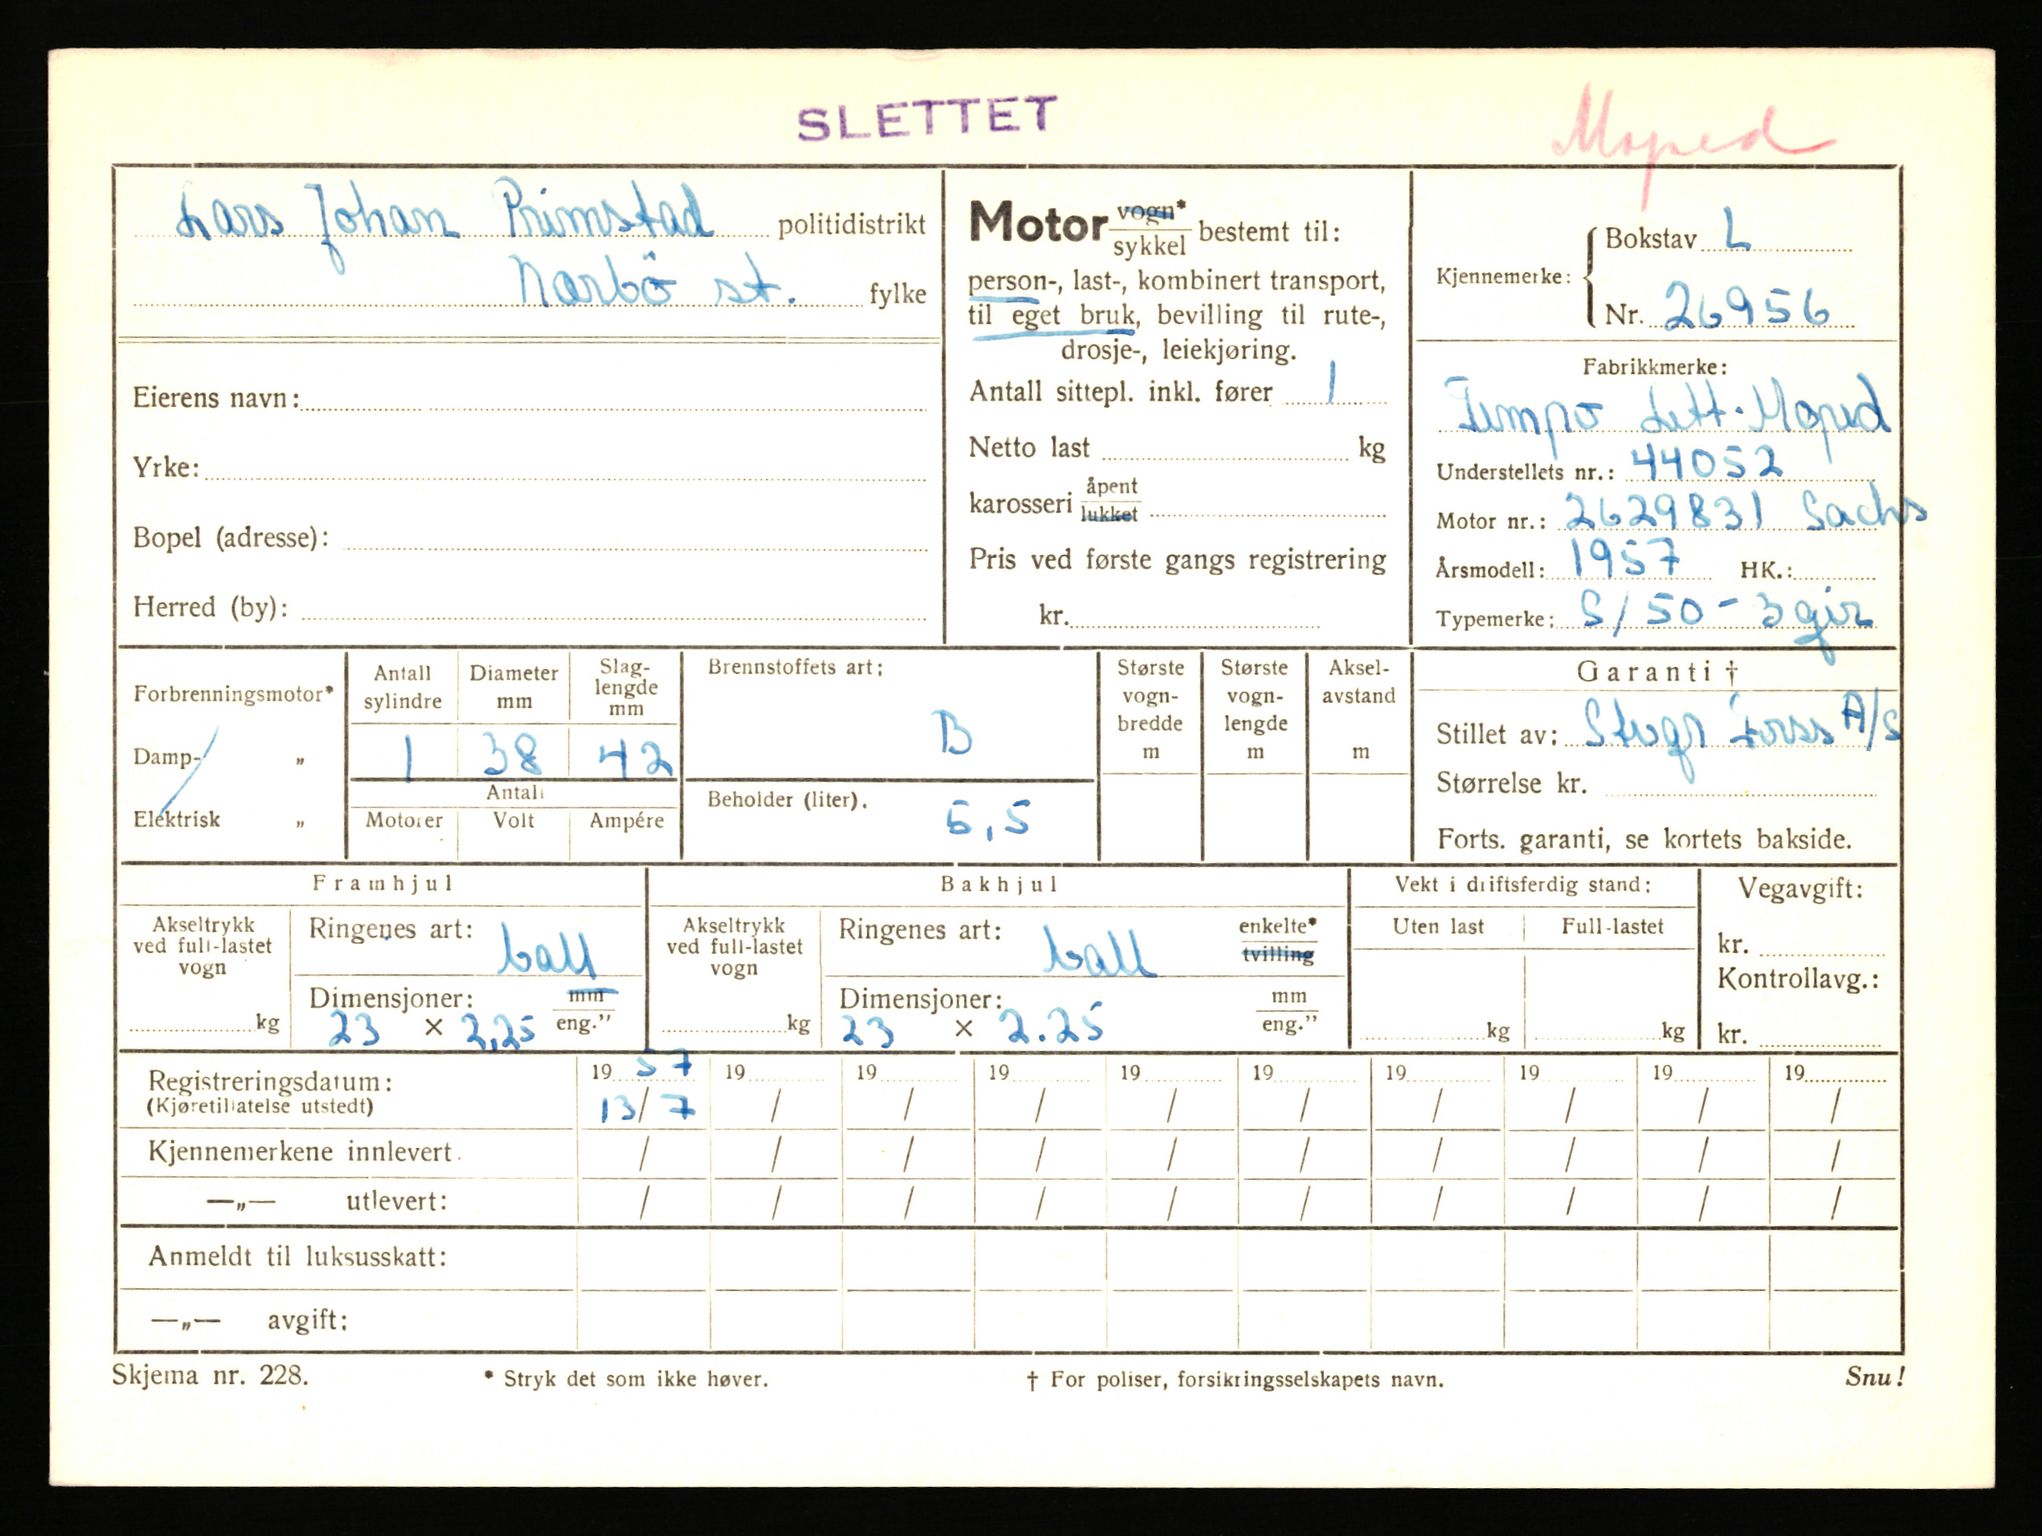 SLETTET
Moped
Lars Johan Primstad politidistrikt
Narbö st. fylke
Eierens navn:
Yrke:
Bopel (adresse):
Herred (by):
Motor vogn*/sykkel bestemt til:
person-, last-, kombinert transport,
til eget bruk, bevilling til rute-,
drosje-, leiekjøring.
Antall sittepl. inkl. fører 1
Netto last kg
karosseri åpent/lukket
Pris ved første gangs registrering
kr.
Kjennemerke:
Bokstav L
Nr. 26956
Fabrikkmerke:
Tempo Lett-Moped
Understellets nr.: 44052
Motor nr.: 2629831 Sachs
Årsmodell: 1957 HK.:
Typemerke: S/50-3gir
Forbrenningsmotor*
Damp- „
Elektrisk „
Antall sylindre
1
Diameter mm
38
Slag-lengde mm
42
Antall
Motorer Volt Ampére
Brennstoffets art:
B
Beholder (liter).
5,5
Største vogn-bredde m
Største vogn-lengde m
Aksel-avstand m
Garanti †
Stillet av: A/S
Størrelse kr.
Forts. garanti, se kortets bakside.
Framhjul
Akseltrykk ved full-lastet vogn
kg
Ringenes art: ball
Dimensjoner: mm/eng."
23 × 2,25
Bakhjul
Akseltrykk ved full-lastet vogn
kg
Ringenes art: ball enkelte*/tvilling
Dimensjoner: mm/eng."
23 × 2.25
Vekt i driftsferdig stand:
Uten last Full-lastet
kg kg
Vegavgift:
kr.
Kontrollavg.:
kr.
Registreringsdatum: 19 57 19 19 19 19 19 19 19 19 19
(Kjøretillatelse utstedt) 13/7 / / / / / / / / /
Kjennemerkene innlevert. / / / / / / / / / /
—„— utlevert: / / / / / / / / / /
Anmeldt til luksusskatt:
—„— avgift:
Skjema nr. 228. * Stryk det som ikke høver. † For poliser, forsikringsselskapets navn. Snu!